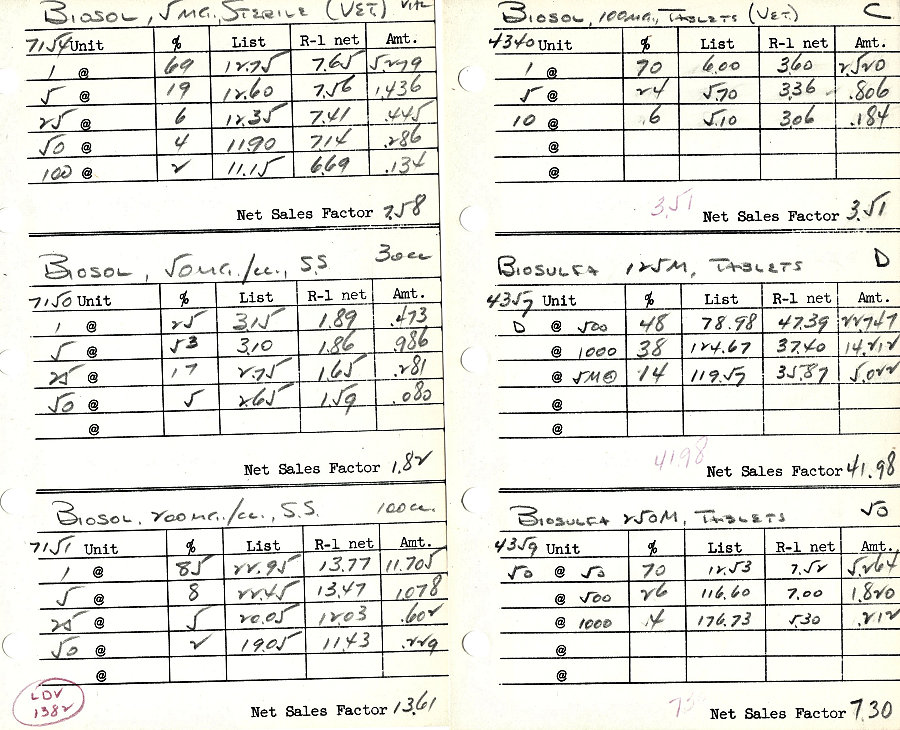 BIOSOL, 5MG., STERILE (VET.) VIAL
7154 Unit % List R-1 net Amt.
1 @ 69 12.75 7.65 5.279
5 @ 19 12.60 7.56 1.436
25 @ 6 12.35 7.41 .445
50 @ 4 11.90 7.14 .286
100 @ 2 11.15 6.69 .134
Net Sales Factor 7.58
BIOSOL, 50MG./cc., S.S. 30cc
7150 Unit % List R-1 net Amt.
1 @ 25 3.15 1.89 .473
5 @ 53 3.10 1.86 .986
25 @ 17 2.75 1.65 .281
50 @ 5 2.65 1.59 .080
@
Net Sales Factor 1.82
BIOSOL, 200MG./cc., S.S. 100cc.
7151 Unit % List R-1 net Amt.
1 @ 85 22.95 13.77 11.705
5 @ 8 22.45 13.47 1.078
25 @ 5 20.05 12.03 .602
50 @ 2 19.05 11.43 .229
@
LDV
1382
Net Sales Factor 13.61
BIOSOL, 100MG., TABLETS (VET.) C
4340 Unit % List R-1 net Amt.
1 @ 70 6.00 3.60 2.520
5 @ 24 5.70 3.36 .806
10 @ 6 5.10 3.06 .184
@
@
3.51
Net Sales Factor 3.51
BIOSULFA 125M, TABLETS D
4357 Unit % List R-1 net Amt.
D @ 500 48 78.98 47.39 22.747
@ 1000 38 124.67 37.40 14.212
@ 5M 14 119.57 35.87 5.022
@
@
41.98
Net Sales Factor 41.98
BIOSULFA 250M, TABLETS 50
4359 Unit % List R-1 net Amt.
50 @ 50 70 12.53 7.52 5.264
@ 500 26 116.60 7.00 1.820
@ 1000 4 176.73 5.30 .212
@
@
Net Sales Factor 7.30